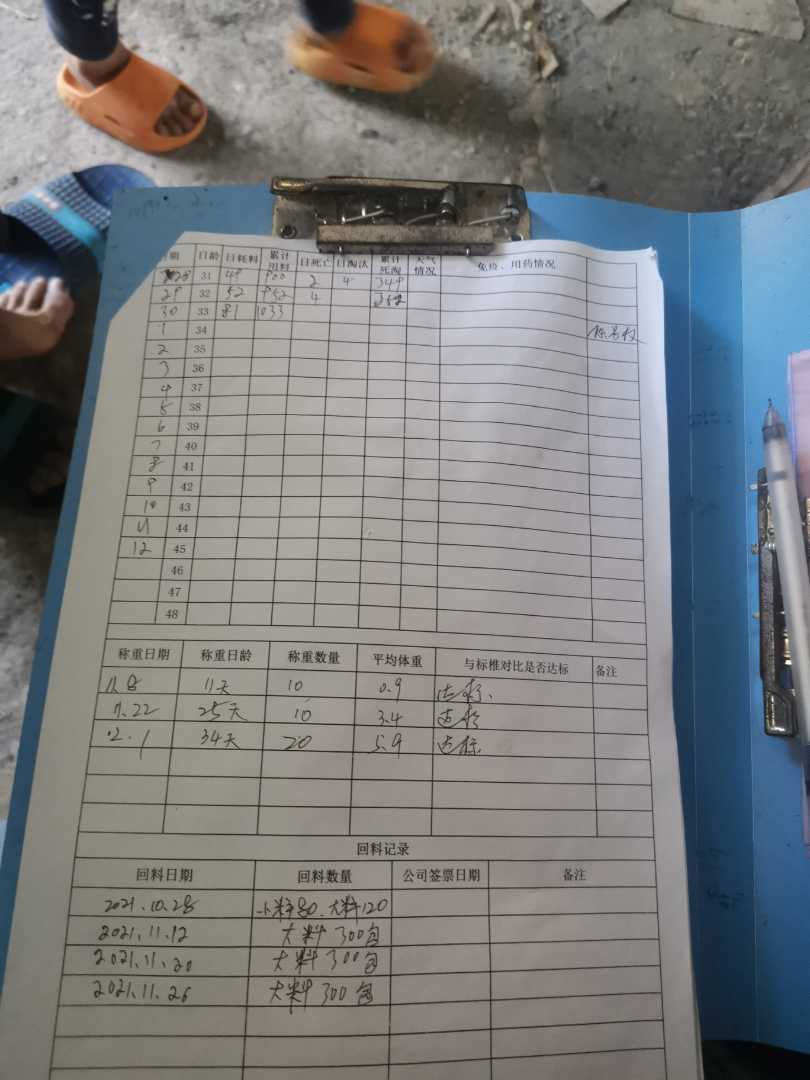 期 日龄 日耗料 累计用料 日死亡 日淘汰 累计死淘 天气情况 免疫、用药情况
28 31 48 900 2 4 349
29 32 52 952 4
30 33 81 1033
1 34
2 35
3 36
4 37
5 38
6 39
7 40
8 41
9 42
10 43
11 44
12 45
46
47
48
称重日期 称重日龄 称重数量 平均体重 与标椎对比是否达标 备注
11.8 11天 10 0.9 达标、
11.22 25天 10 3.4 达标
2.1 34天 20 5.9 达标
回料记录
回料日期 回料数量 公司签票日期 备注
2021.10.28 小料80、大料120
2021.11.12 大料300包
2021.11.20 大料300包
2021.11.26 大料300包